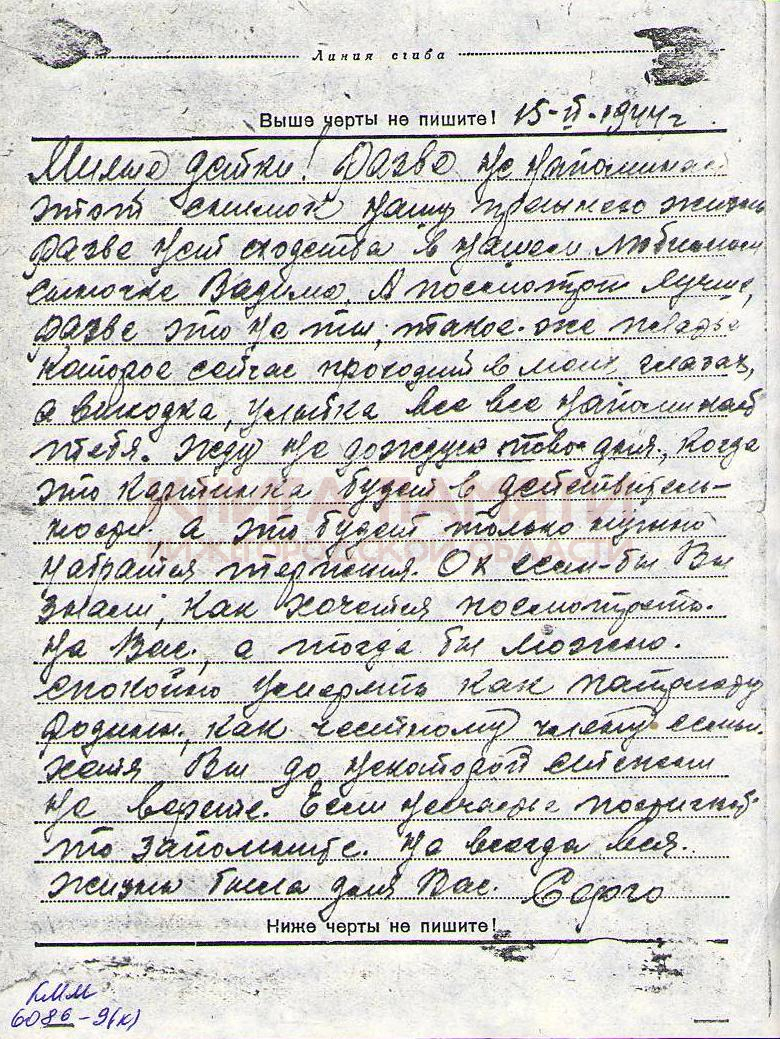 Линия сгиба
Выше черты не пишите! 15-II-1944 г.
Милые детки! Разве не напоминает
этот снимок нашу прошлую жизнь
разве нет сходства в нашем любимом
сыночке Вадиме. А посмотрите лучше,
разве это не ты, такое же
которое сейчас проходит в моих глазах,
а выходка, улыбка все все напоминает
тебя. Жду не дождусь того дня, когда
это картинка будет в действитель-
ности. а это будет только нужно
набратся терпения. Ох если-бы Вы
знали, как хочется посмотреть.
на Вас, а тогда бы можно.
спокойно умереть как патриоту
родины, как честному члену семьи.
хотя Вы до некоторой степени
не верите. Если несчастье постигнет
то запомните. на всегда вся
жизнь была для Вас. Серго
Ниже черты не пишите!
КНИГА ПАМЯТИ
НИЖЕГОРОДСКОЙ ОБЛАСТИ
КММ
6086-9(к)